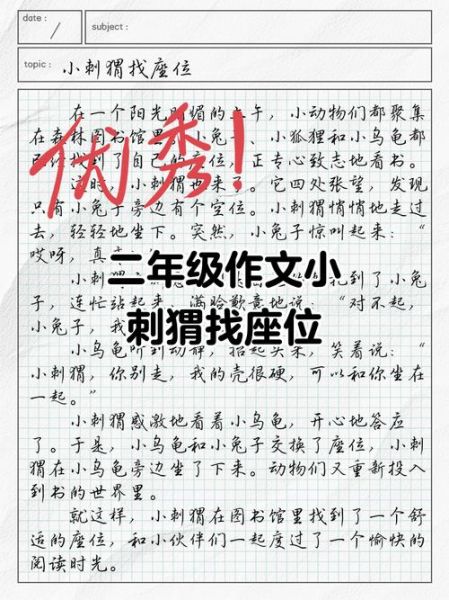 date :
/
subject :
topic :
小刺猬找座位
在一个阳光明媚的上午，小动物们都聚集
在森林图书馆里。小兔子、小狐狸和小乌龟都
已经找到了自己的座位，正专心致志地看书。
这时，小刺猬也来了。它四处张望，发现
只有小兔子旁边有个空位。小刺猬悄悄地走过
去，轻轻地坐下。突然，小兔子惊叫起来：“
哎呀，真
小刺猬
扎到了小兔
子，连忙站起来，满脸歉意地说：“对不起，
小兔子，我
小乌龟听到动静，抬起头来，笑着说：“
小刺猬，你别走，我的壳很硬，可以和你坐在
一起。”
小刺猬感激地看着小乌龟，开心地答应
了。于是，小乌龟和小兔子交换了座位，小刺
猬在小乌龟旁边坐了下来。动物们又重新投入
到书的世界里。
就这样，小刺猬在图书馆里找到了一个舒
适的座位，和小伙伴们一起度过了一个愉快的
阅读时光。
优秀!
二年级作文小
刺猬找座位